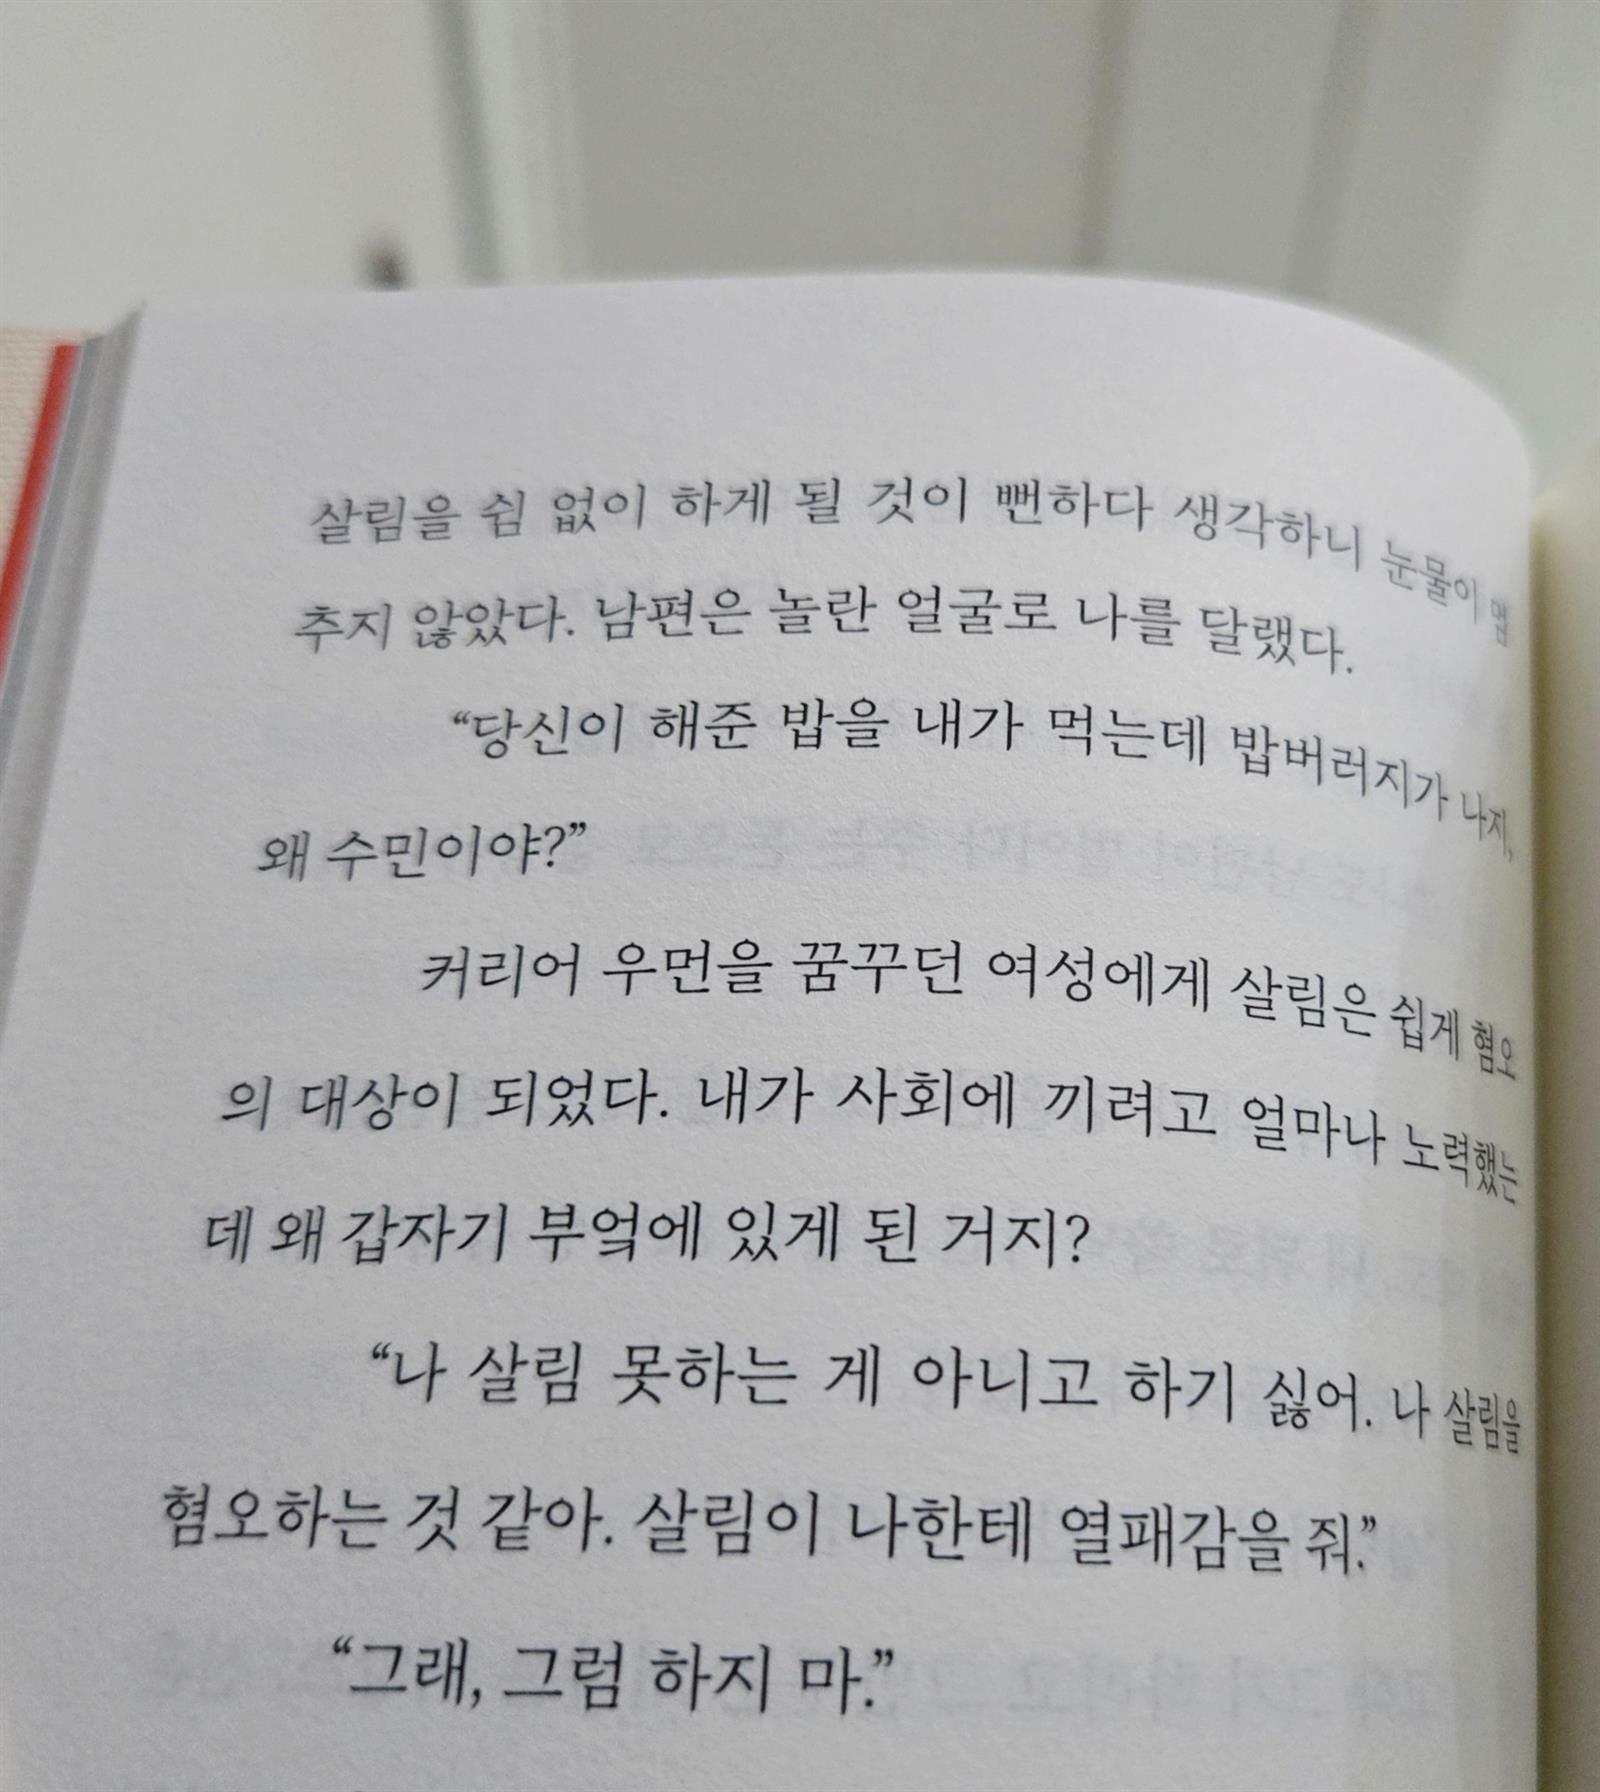 살림을 쉼 없이 하게 될 것이 뻔하다 생각하니 눈물이 멈
추지 않았다. 남편은 놀란 얼굴로 나를 달랬다.
“당신이 해준 밥을 내가 먹는데 밥버러지가 나지,
왜 수민이야?”
커리어 우먼을 꿈꾸던 여성에게 살림은 쉽게 혐오
의 대상이 되었다. 내가 사회에 끼려고 얼마나 노력했는
데 왜 갑자기 부엌에 있게 된 거지?
“나 살림 못하는 게 아니고 하기 싫어. 나 살림을
혐오하는 것 같아. 살림이 나한테 열패감을 줘.”
“그래, 그럼 하지 마.”